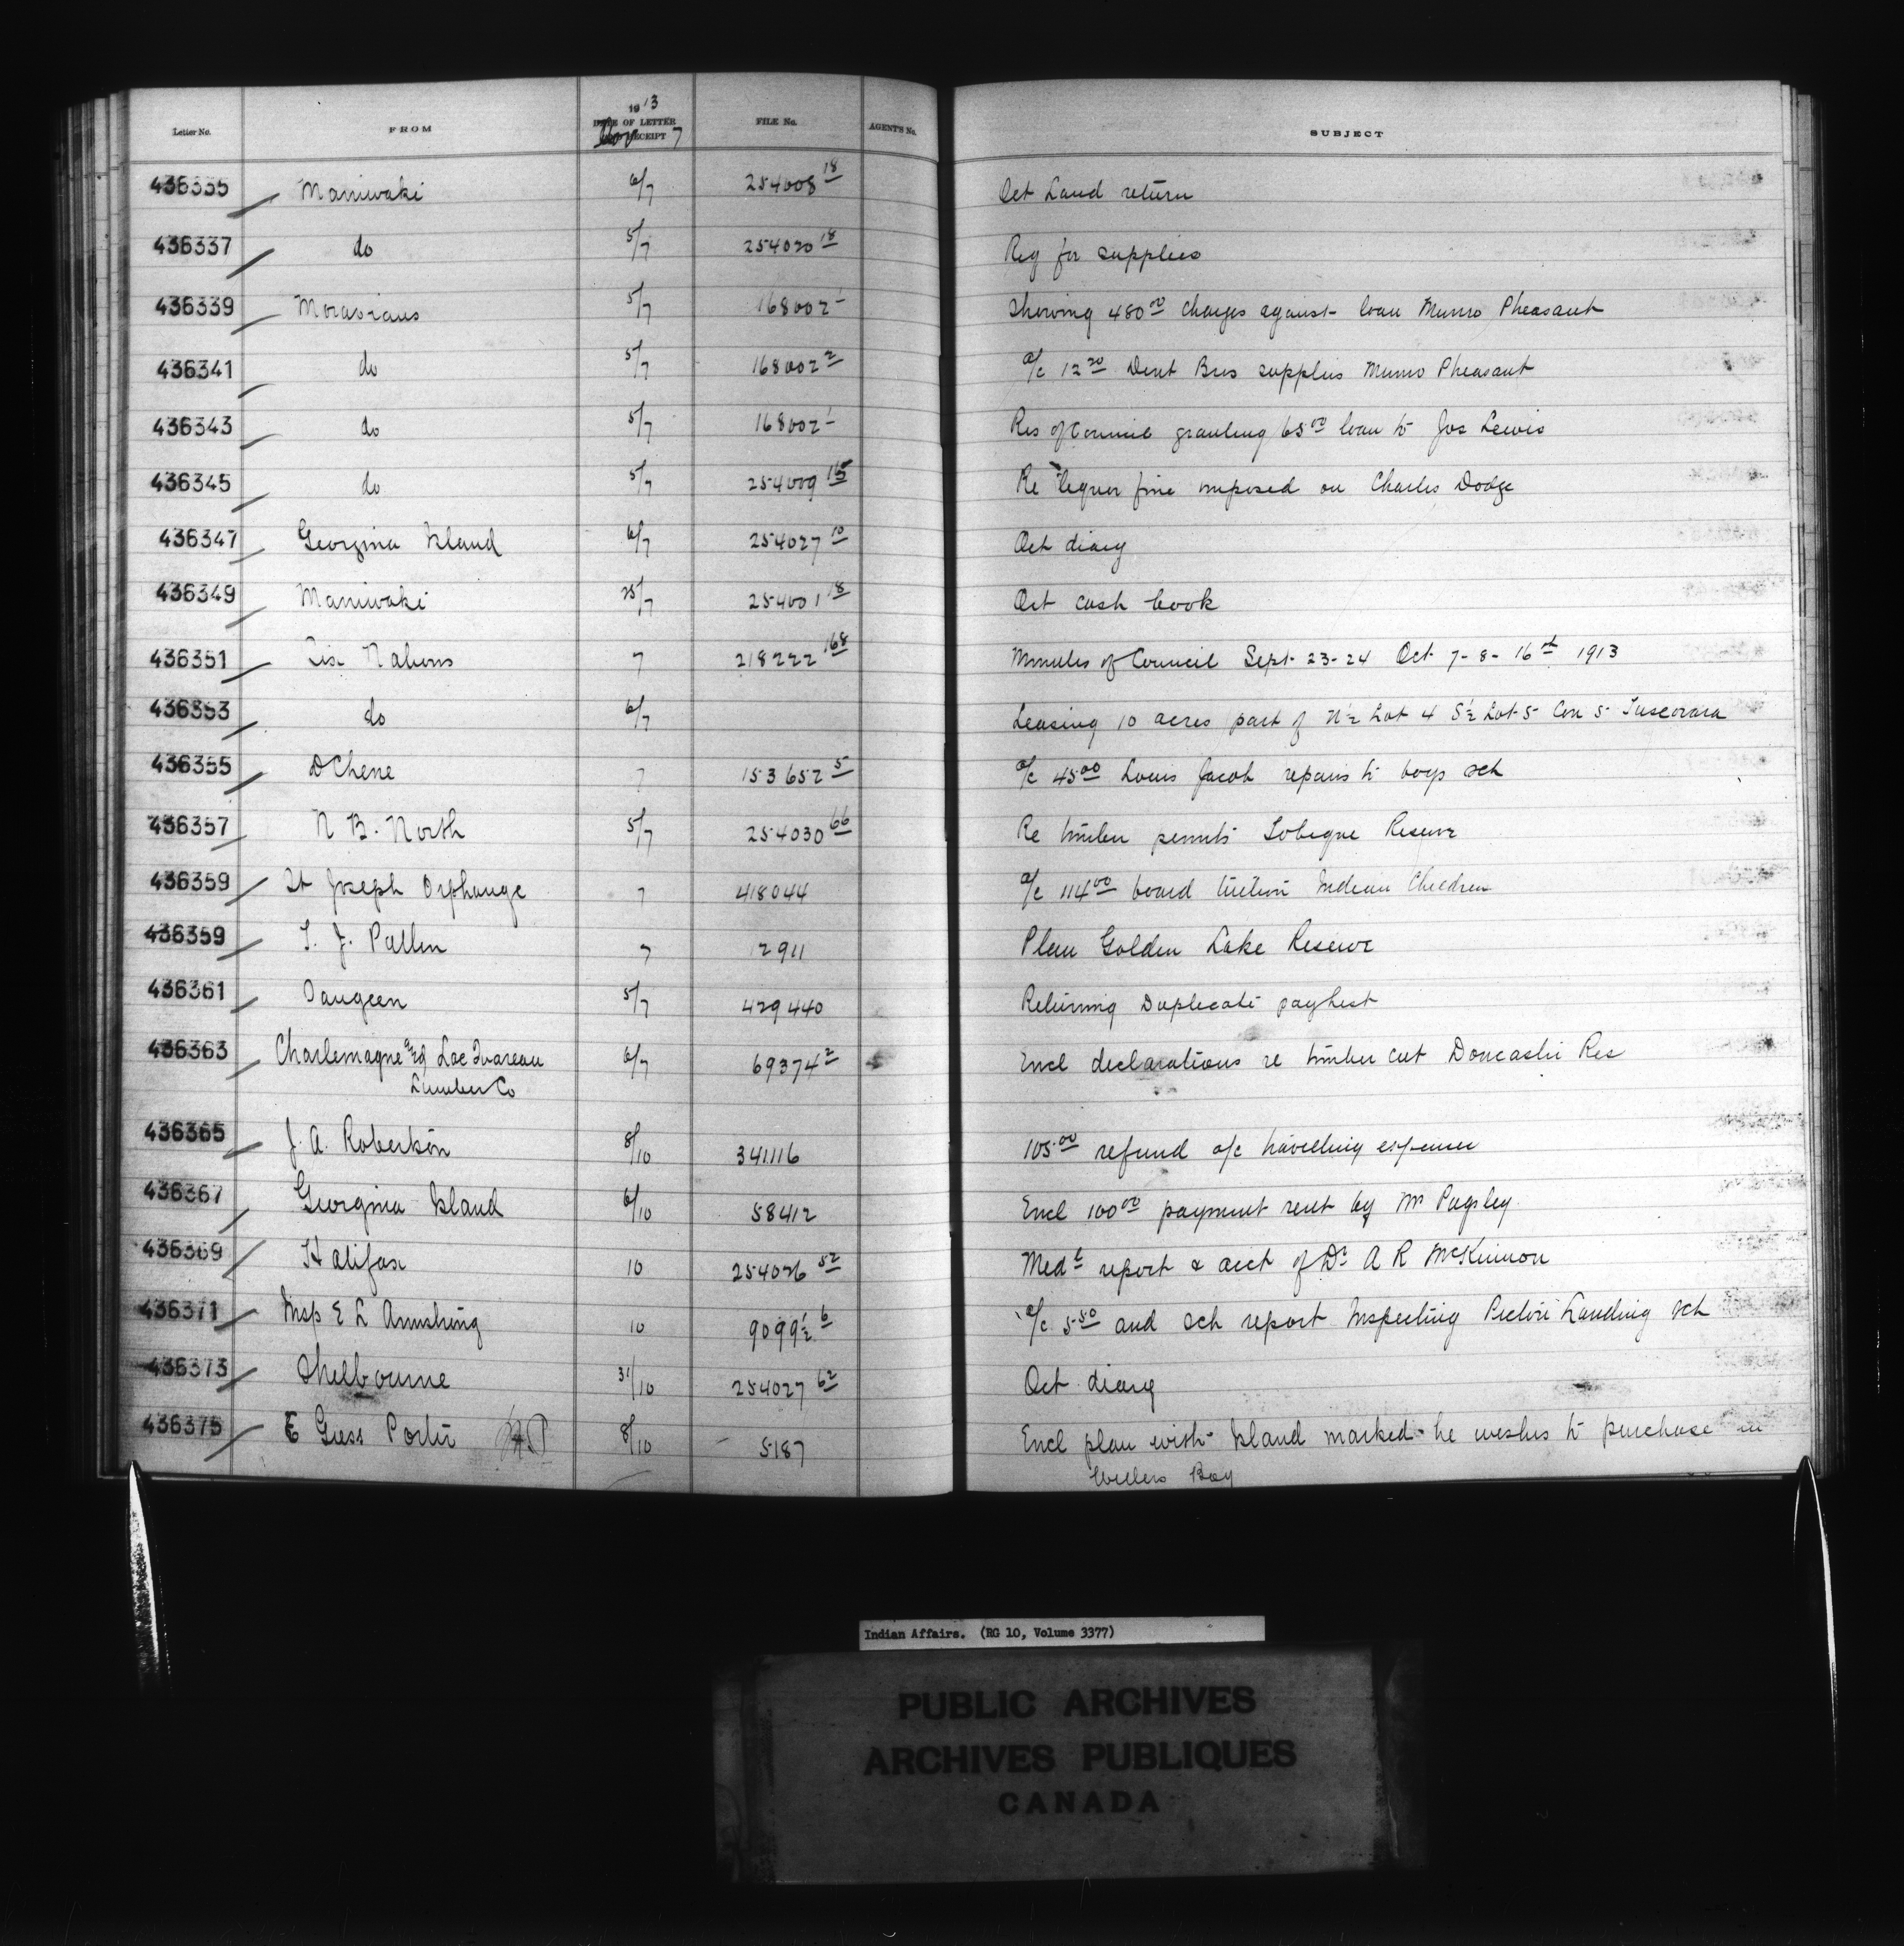 Letter No. FROM 1913 DATE OF LETTER FILE No. AGENT'S No. SUBJECT
Nov RECEIPT 7
436335 Maniwaki 6/7 254008 18 Oct Land return
436337 do 5/7 254020 18 Req for supplies
436339 Moravians 5/7 168002 1 Showing 480 00 charges against loan Munro Pheasant
436341 do 5/7 168002 2 a/c 12 20 Dent Bros supplies Munro Pheasant
436343 do 5/7 168002 1 Res of Council granting 65 00 loan to Jos Lewis
436345 do 5/7 254009 15 Re liquor fine imposed on Charles Dodge
436347 Georgina Island 6/7 254027 10 Oct diary
436349 Maniwaki 25/7 254001 18 Oct cash book
436351 Six Nations 7 218222 168 Minutes of Council Sept 23-24 Oct 7-8-16th 1913
436353 do 6/7 Leasing 10 acres part of N½ Lot 4 S½ Lot 5 Con 5 Tuscorara
436355 DChene 7 153652 5 a/c 45 00 Louis Jacob repairs to boys sch
436357 N B. North 5/7 254030 66 Re timber permits Tobique Reserve
436359 St Joseph Orphange 7 418044 a/c 114 00 board tuition Indian Children
436359 T. J. Patten 7 12911 Plan Golden Lake Reserve
436361 Saugeen 5/7 429440 Returning Duplicate paylist
436363 Charlemagne and Lac Ouareau 6/7 69374 2 Encl declarations re timber cut Doncaster Res
Lumber Co
436365 J. A. Robertson 8/10 341116 105 00 refund a/c travelling expenses
436367 Georgina Island 6/10 58412 Encl 100 00 payment rent by Mr Pugsley
436369 Halifax 10 254026 52 Medl report & acct of Dr A R McKinnon
436371 Insp E L Armstrong 10 9099½ 6 a/c 5 50 and sch report Inspecting Pictou Landing sch
436373 Shelbourne 31/10 254027 62 Oct diary
436375 E Guss Porter M.P 8/10 5187 Encl plan with Island marked he wishes to purchase in
Wellers Bay
Indian Affairs. (RG 10, Volume 3377)
PUBLIC ARCHIVES
ARCHIVES PUBLIQUES
CANADA